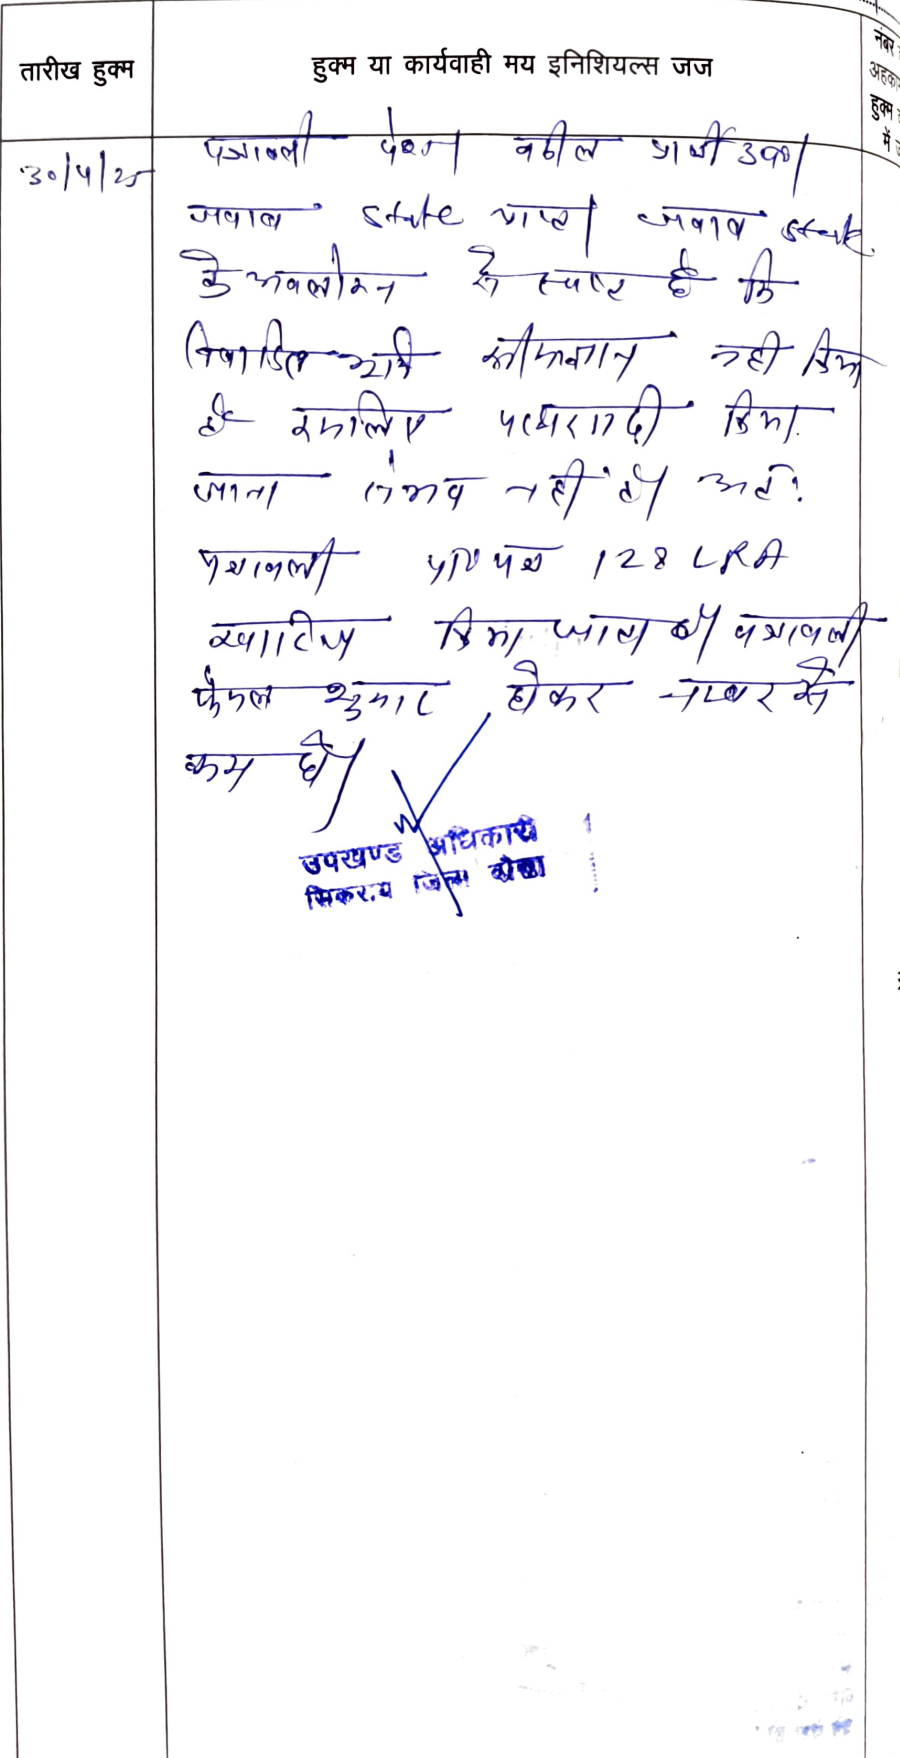 तारीख हुक्म
हुक्म या कार्यवाही मय इनिशियल्स जज
नंबर
अहकाम
हुक्म
में
30/4/25
पत्रावली पेश। वकील प्रार्थी उप।
जवाब state प्राप्त। जवाब state
के अवलोकन से स्पष्ट है कि
विवादित भूमि सीमाज्ञान नही किया
है इसलिए पत्थरगढी किया
जाना संभव नही है। अतः
पत्रावली 128 LRA
खारिज किया जाता है। पत्रावली
फैसल शुमार होकर नम्बर से
कम हो।
उपखण्ड अधिकारी
सिकराय जिला दौसा